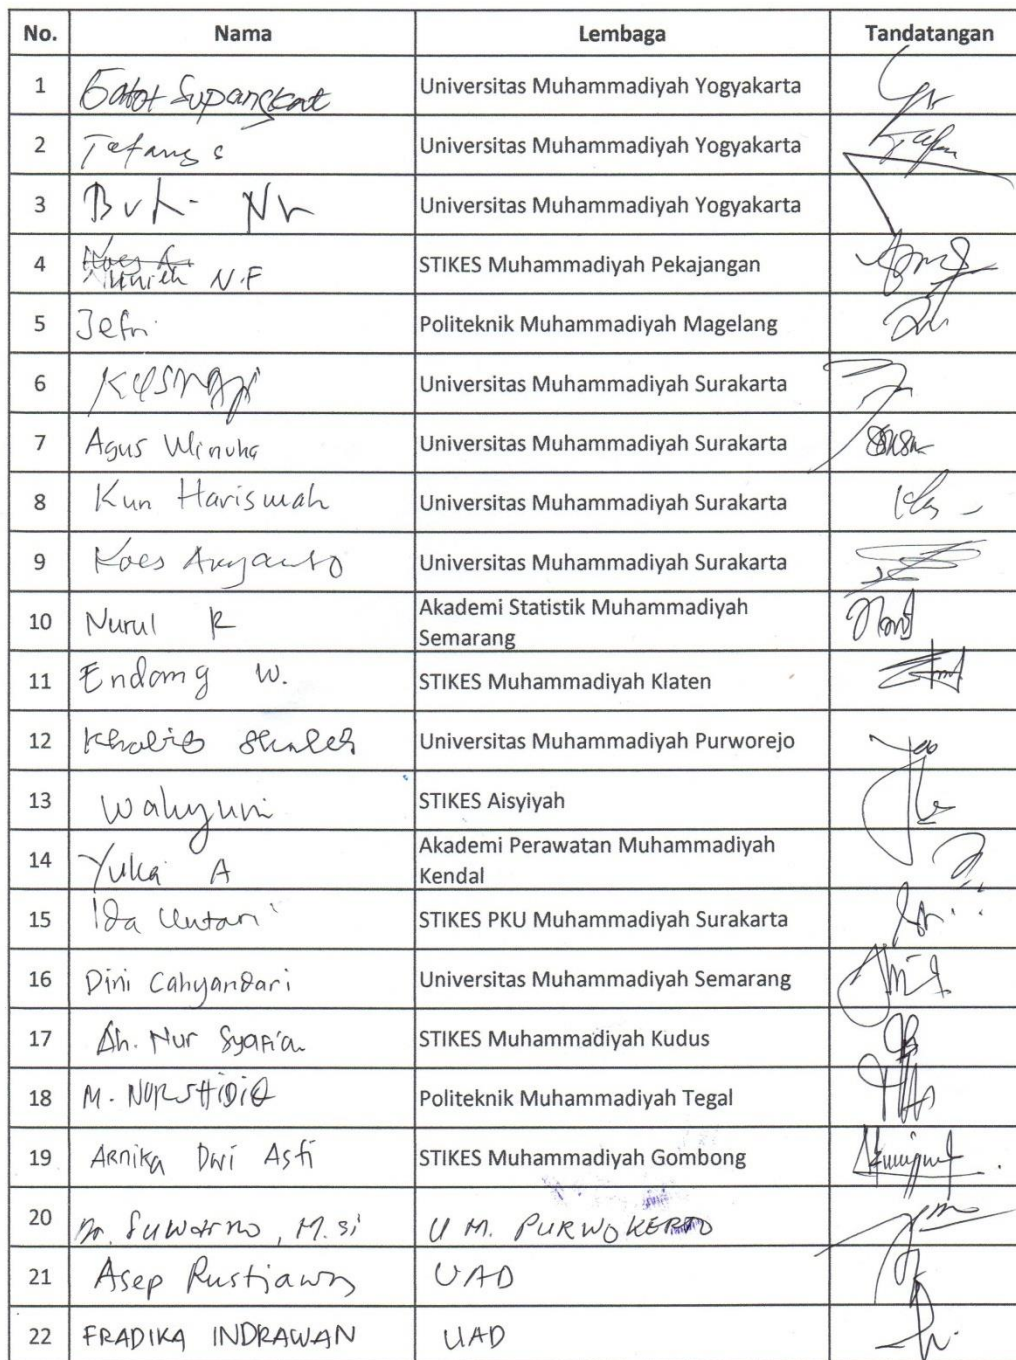 No. Nama Lembaga Tandatangan
1 Gatot Supangkat Universitas Muhammadiyah Yogyakarta
2 Universitas Muhammadiyah Yogyakarta
3 Universitas Muhammadiyah Yogyakarta
4 N.F STIKES Muhammadiyah Pekajangan
5 Jefri Politeknik Muhammadiyah Magelang
6 Universitas Muhammadiyah Surakarta
7 Agus Universitas Muhammadiyah Surakarta
8 Kun Harismah Universitas Muhammadiyah Surakarta
9 Koes Universitas Muhammadiyah Surakarta
10 Nurul R Akademi Statistik Muhammadiyah
Semarang
11 Endang W. STIKES Muhammadiyah Klaten
12 Universitas Muhammadiyah Purworejo
13 Wahyuni STIKES Aisyiyah
14 Yulia A Akademi Perawatan Muhammadiyah
Kendal
15 Ida Untari STIKES PKU Muhammadiyah Surakarta
16 Dini Cahyandari Universitas Muhammadiyah Semarang
17 Ah. Nur Syafi'a STIKES Muhammadiyah Kudus
18 M. NURSHIDIQ Politeknik Muhammadiyah Tegal
19 Arnika Dwi Asti STIKES Muhammadiyah Gombong
20 Dr. Suwarno, M.si U M. PURWOKERTO
21 Asep Rustiawan UAD
22 FRADIKA INDRAWAN UAD